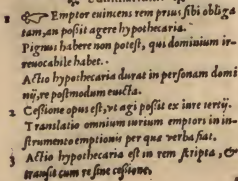 1 ☞ Emptor euincens rem prius sibi obliga
tam, an possit agere hypothecaria.
Pignus habere non potest, qui dominium ir-
reuocabile habet.
Actio hypothecaria durat in personam domi
nij, re postmodum euicta.
2 Cessione opus est, vt agi possit ex iure tertij.
Translatio omnium iurium emptoris in in-
strumento emptionis per quæ verba fiat.
3 Actio hypothecaria est in rem scripta, &
transit cum re sine cessione.